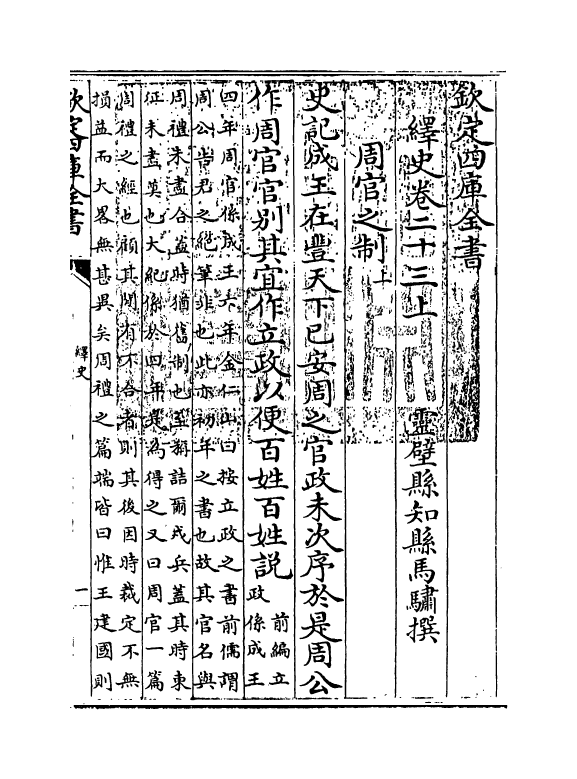 欽定四庫全書
繹史卷二十三上
靈壁縣知縣馬驌撰
周官之制上
史記成王在豐天下已安周之官政未次序於是周公
作周官官別其宜作立政以便百姓百姓説
前編立政係成王
四年周官係成王六年金仁山曰按立政之書前儒謂
周公告君之絶筆非也此亦初年之書也故其官名與
周禮未盡合蓋時猶舊制也至若詰爾戎兵蓋其時東
征未盡莫也大紀係於四年是為得之又曰周官一篇
周禮之經也顧其間有不合者則其後因時裁定不無
損益而大畧無甚異矣周禮之篇端皆曰惟王建國則
欽定四庫全書
繹史
一